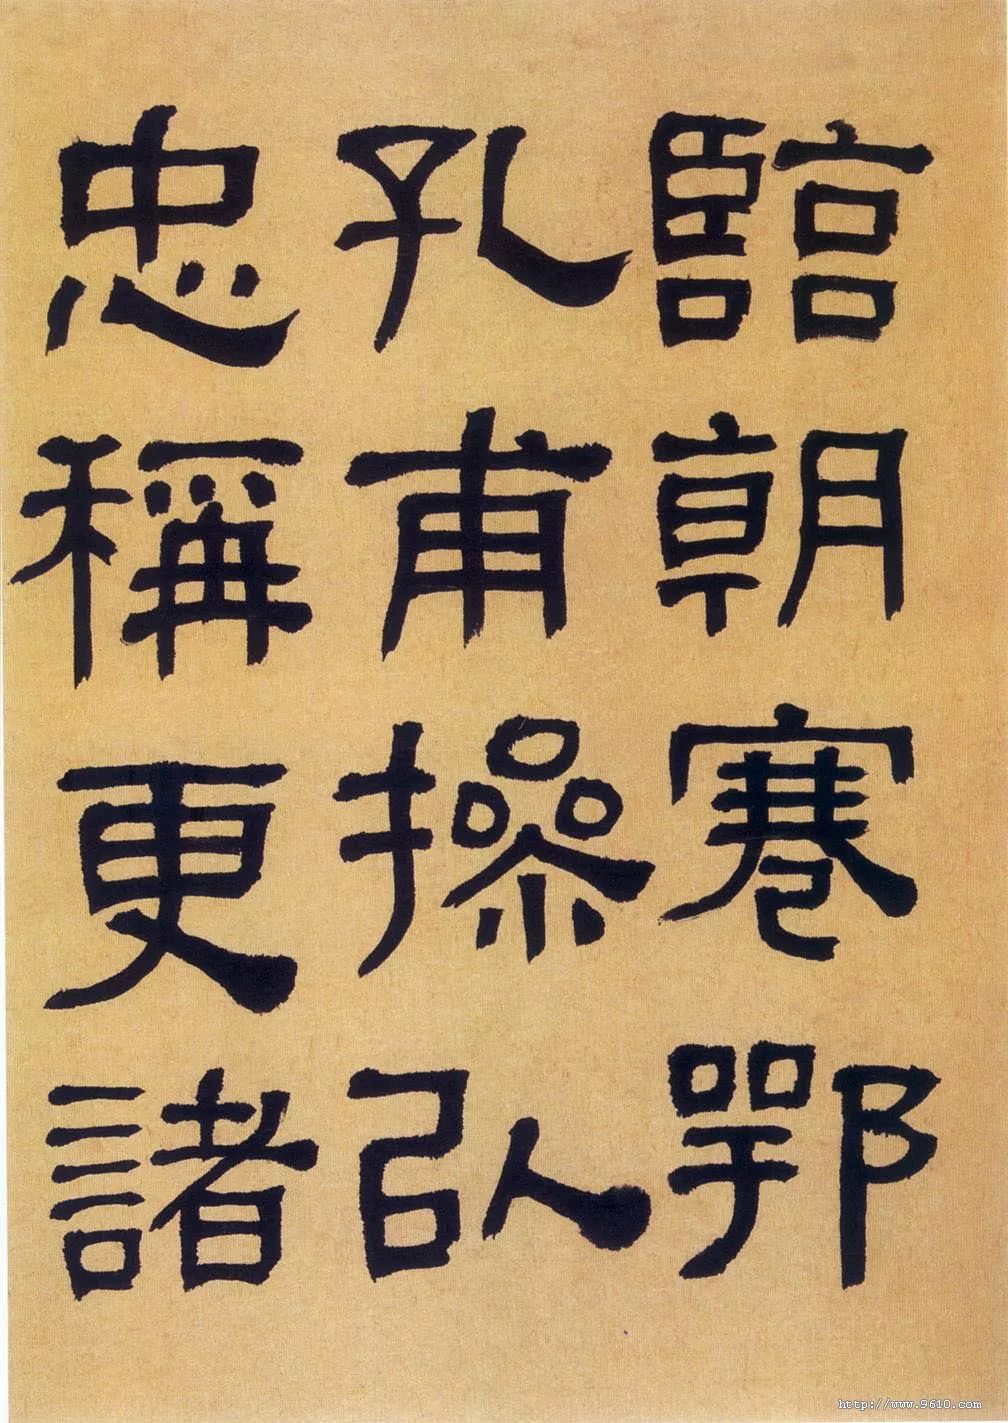 臨朝謇鄂
孔甫操㠯
忠稱更諸
http://www.9610.com